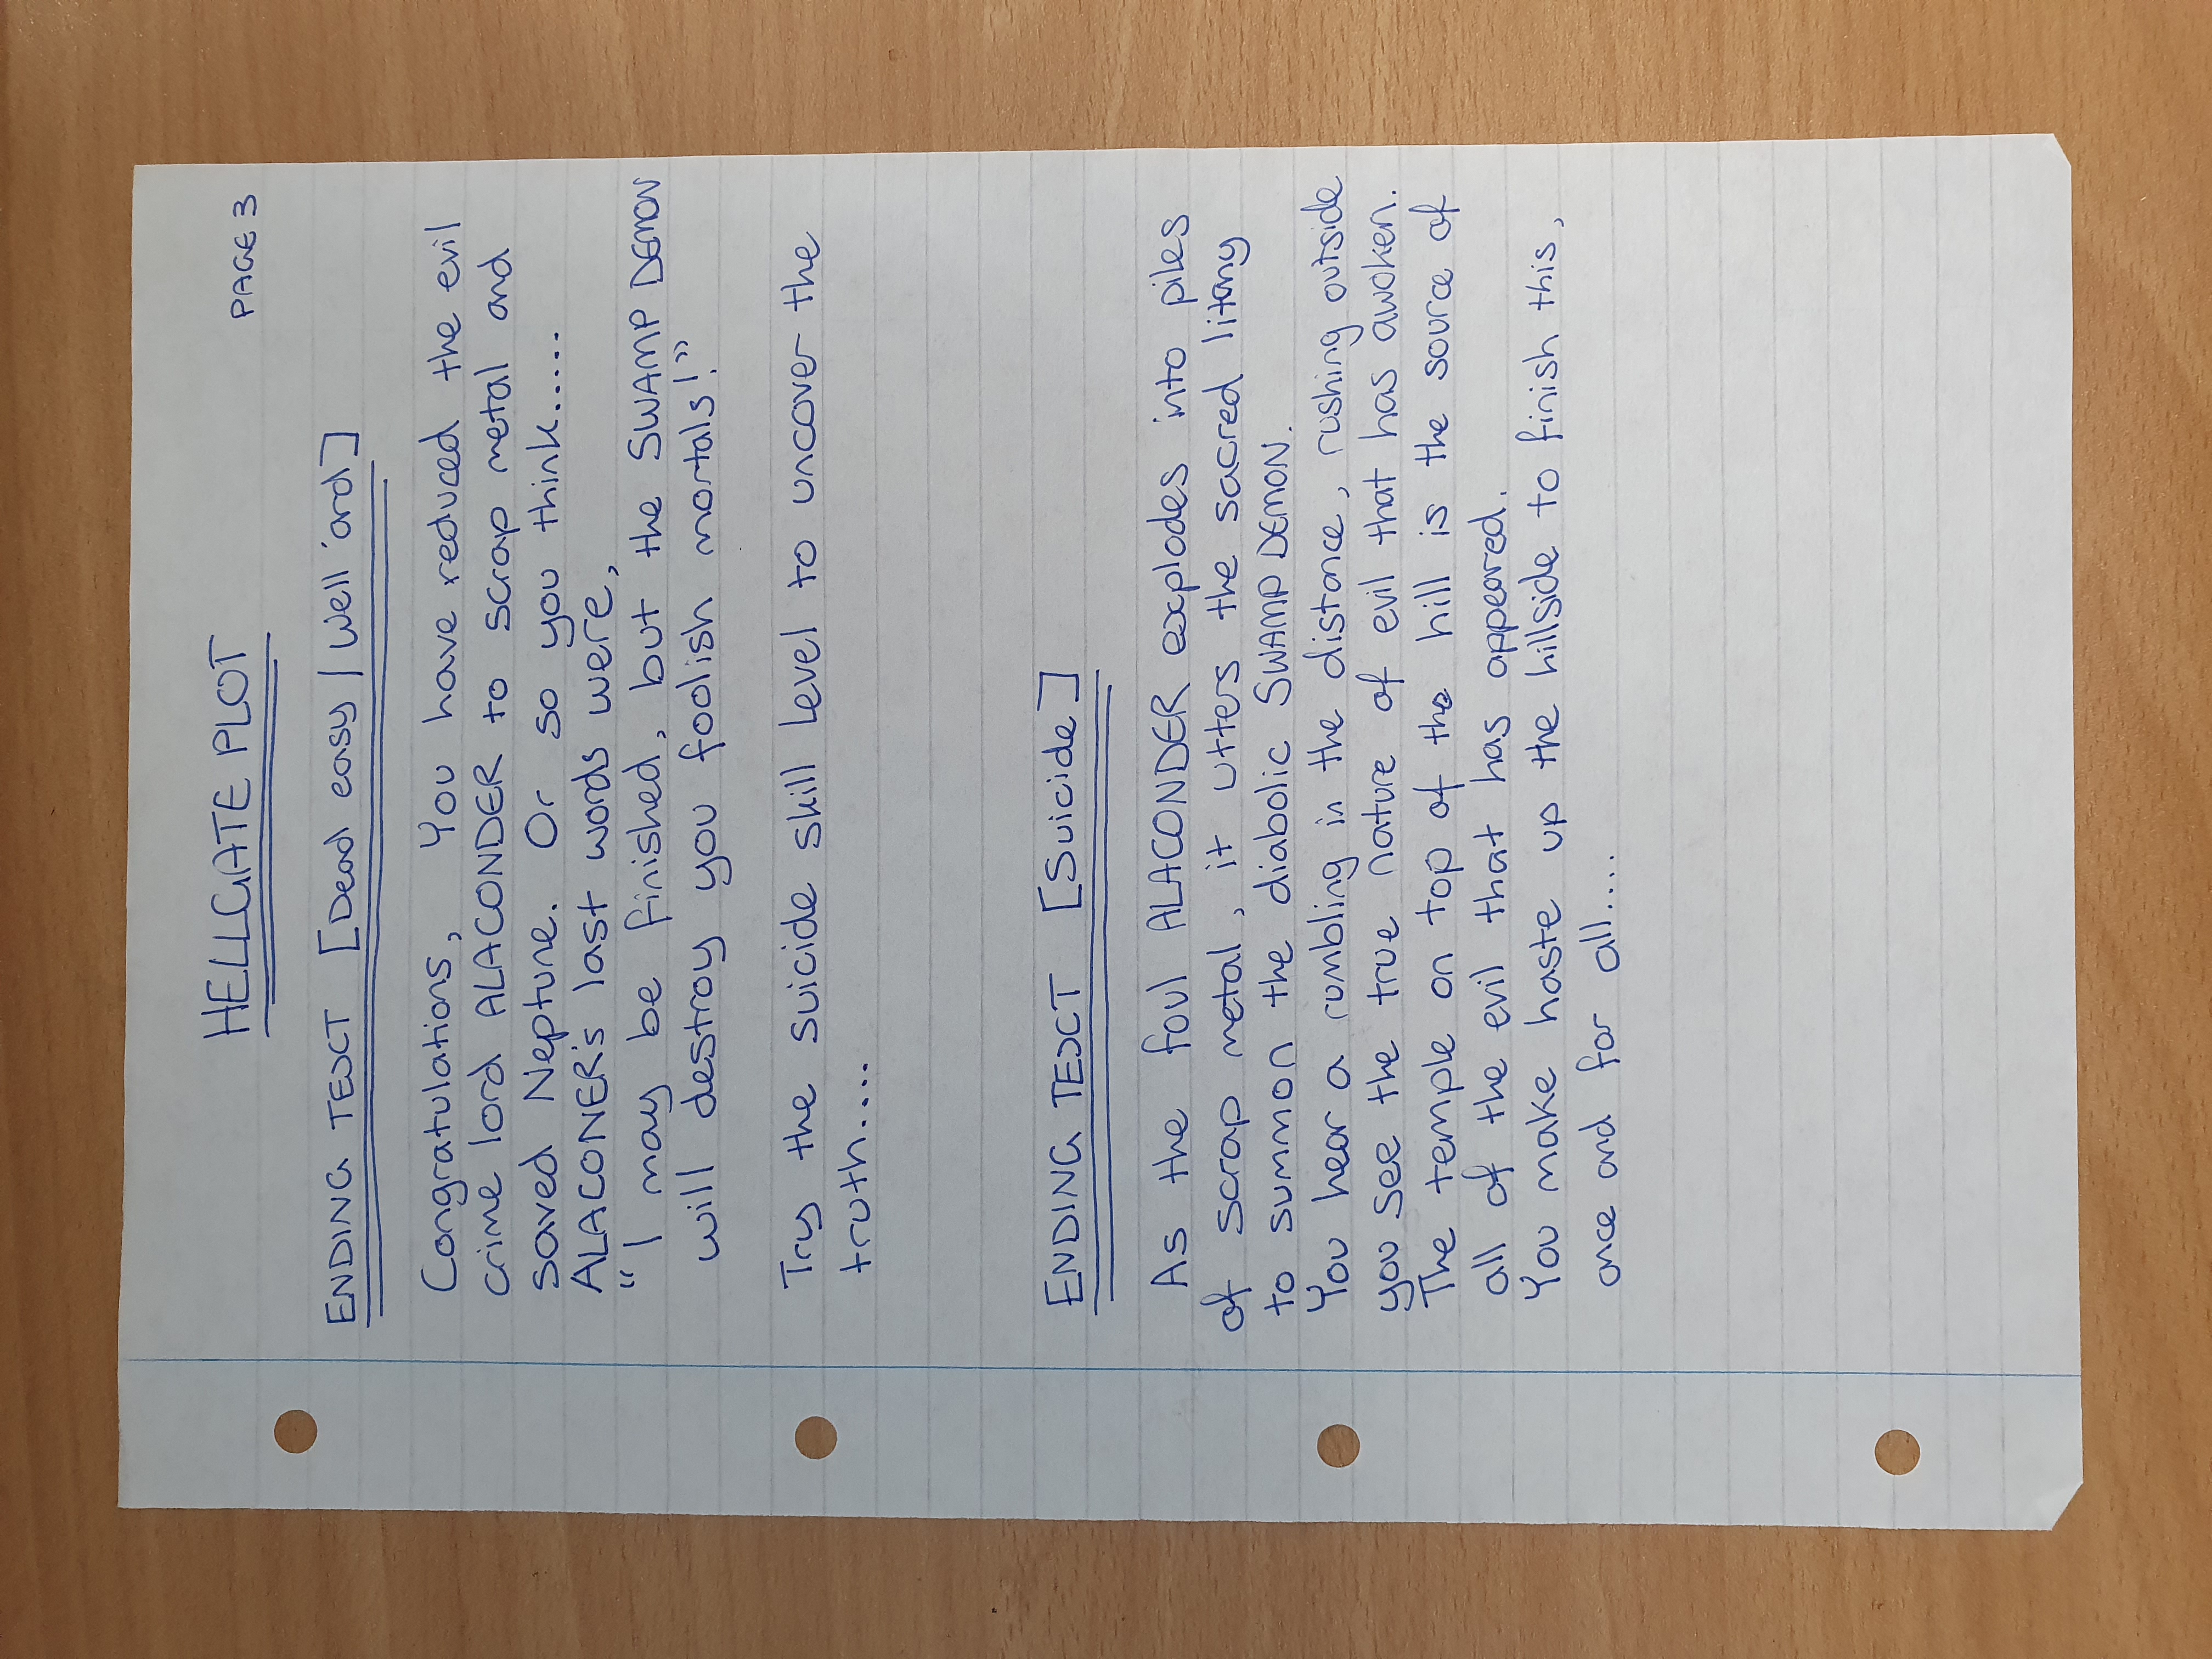 HELLGATE PLOT
PAGE 3
ENDING TEXT [Dead easy / Well 'ard]
Congratulations, You have reduced the evil
crime lord ALACONDER to scrap metal and
saved Neptune. Or so you think.....
ALACONER's last words were,
"I may be finished, but the SWAMP DEMON
will destroy you foolish mortals!"
Try the suicide skill level to uncover the
truth....
ENDING TEXT [Suicide]
As the foul ALACONDER explodes into piles
of scrap metal, it utters the sacred litany
to summon the diabolic SWAMP DEMON.
You hear a rumbling in the distance, rushing outside
you see the true nature of evil that has awoken.
The temple on top of the hill is the source of
all of the evil that has appeared.
You make haste up the hillside to finish this,
once and for all....